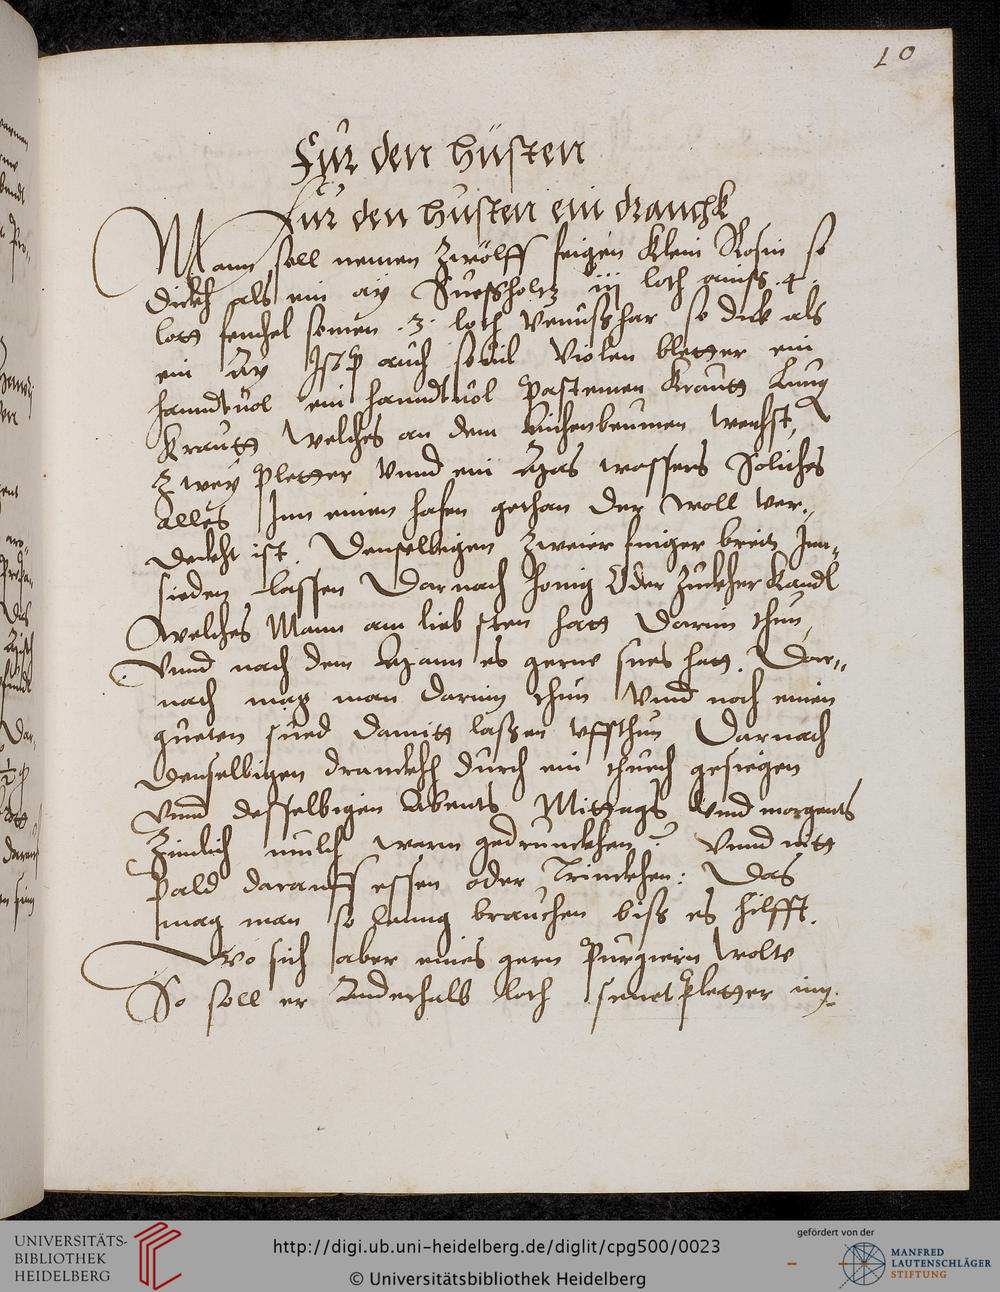 10
Fur den hüsten
Fur den husten ein dranckh
Mann soll nemen Zwölff feigen klein Rosin so
dickh als ein ay Suessholtz iij loth aniss .4.
lott fenchel somen .3. loth Venusshar so dick als
ein ay Isop auch souil violen bletter ein
handtuol ein handtuol pastemen kraut Lung
kraut welches an dem Aichenbeumen wechst,
Zwey pletter vnnd ein Mas wassers Soliches
alles Inn einen hafen gethan der woll ver-
deckht ist. Denselbigen Zweier finger breit Inn-
sieden lassen Darnach honig Oder Zuckher kandl
welches Mann am liebsten hatt Darin thun,
Vnnd nach dem Mann es gerne sues hatt. Dar-
nach mag man darein thun Vnnd noch einen
guten sued damit lassen vffthun Darnach
Denselbigen dranckh durch ein thuch gesiegen
Vnnd desselbigen Abents Mittags Vnnd morgents
Zimlich milch warm gedrunckhen: Vnnd nitt
pald darauff essen oder Trinckhen: Das
mag man so lanng brauchen biss es hilfft.
Wo sich aber eines gern purgiern wolte
So soll er Anderhalb loth senet pletter
UNIVERSITÄTS-
BIBLIOTHEK
HEIDELBERG
http://digi.ub.uni-heidelberg.de/diglit/cpg500/0023
© Universitätsbibliothek Heidelberg
gefördert von der
MANFRED
LAUTENSCHLÄGER
STIFTUNG